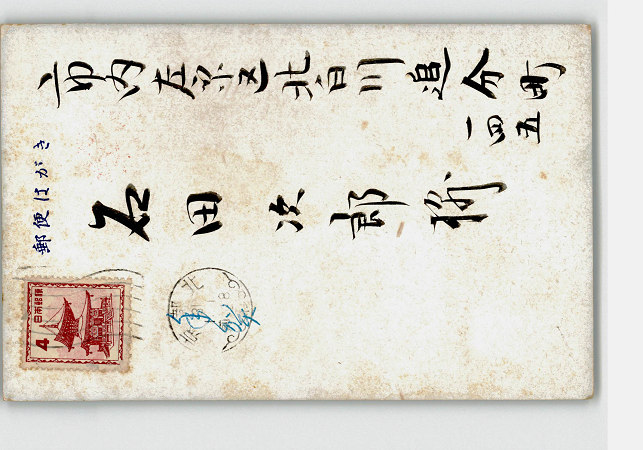 市内左京区北白川追分町
一四五
石田次郎様
郵便はがき
日本郵便
4